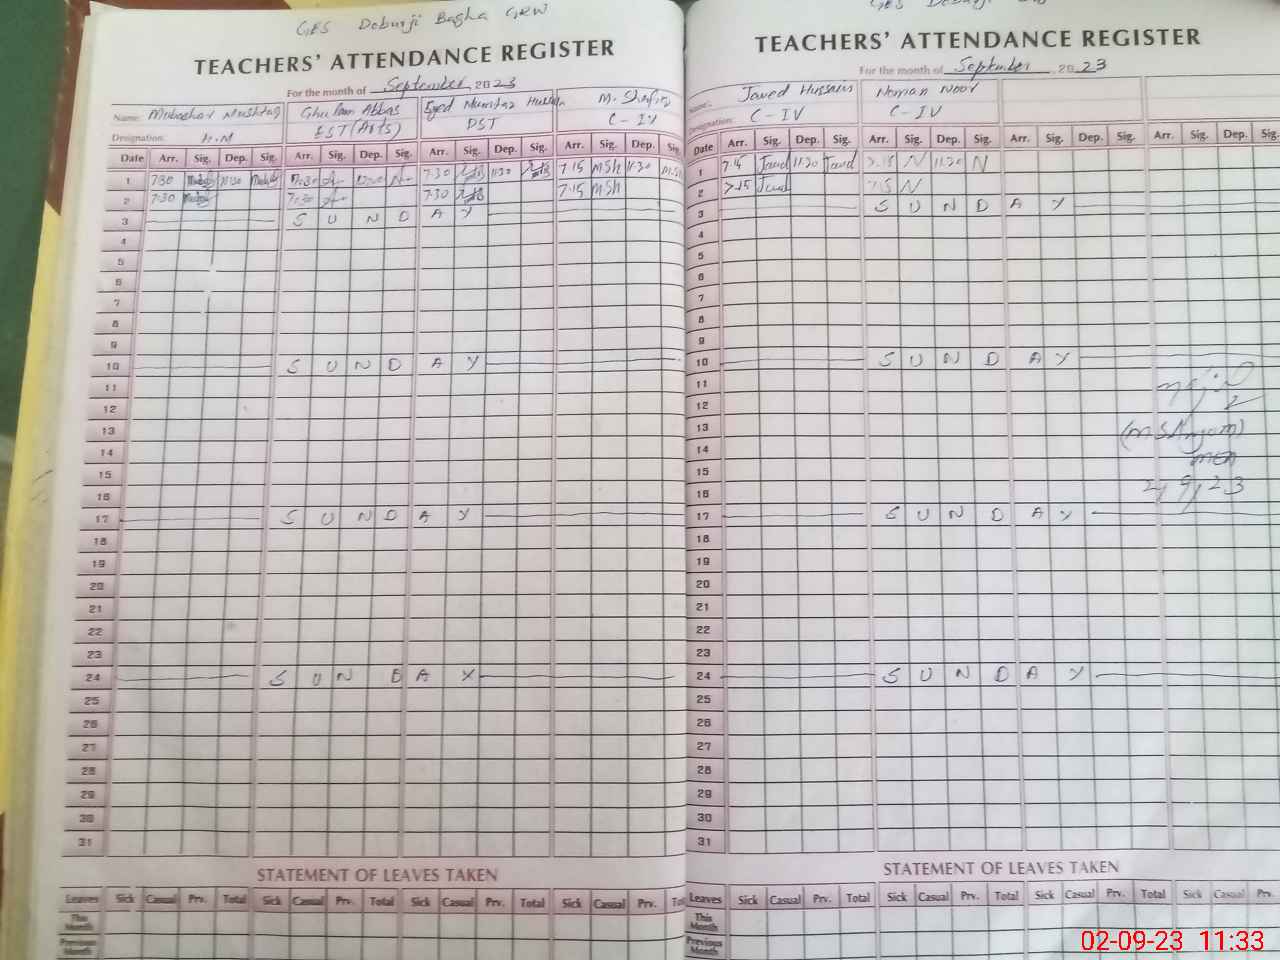 GES Deburji Bagha GRW
TEACHERS' ATTENDANCE REGISTER
For the month of September 2023
Name: Mubashar Mushtaq Ghulam Abbas Syed Mumtaz Hussain M. Shafiq
Designation: H.M EST (Arts) PST C-IV
Date Arr. Sig. Dep. Sig. Arr. Sig. Dep. Sig. Arr. Sig. Dep. Sig. Arr. Sig. Dep. Sig.
1 7:30 11:30 7:30 7:30 11:30 7:15 MSh 11:30 MSh
2 7:30 7:30 7:30 7:15 MSh
3 S U N D A Y
4
5
6
7
8
9
10 S U N D A Y
11
12
13
14
15
16
17 S U N D A Y
18
19
20
21
22
23
24 S U N D A Y
25
26
27
28
29
30
31
STATEMENT OF LEAVES TAKEN
Leaves Sick Casual Prv. Total Sick Casual Prv. Total Sick Casual Prv. Total Sick Casual Prv. Tot
This Month
Previous Month
GES Deburji
TEACHERS' ATTENDANCE REGISTER
For the month of September, 2023
Name: Javed Hussain Noman Noor
Designation: C-IV C-IV
Date Arr. Sig. Dep. Sig. Arr. Sig. Dep. Sig. Arr. Sig. Dep. Sig. Arr. Sig. Dep. Sig.
1 7:15 Javed 11:30 Javed 7:15 N 11:30 N
2 7:15 Javed 7:15 N
3 S U N D A Y
4
5
6
7
8
9
10 S U N D A Y
11
12
13 (M S Anjam)
14
15
16 2/9/23
17 S U N D A Y
18
19
20
21
22
23
24 S U N D A Y
25
26
27
28
29
30
31
STATEMENT OF LEAVES TAKEN
Leaves Sick Casual Prv. Total Sick Casual Prv. Total Sick Casual Prv. Total Sick Casual
This Month
Previous Month
02-09-23 11:33